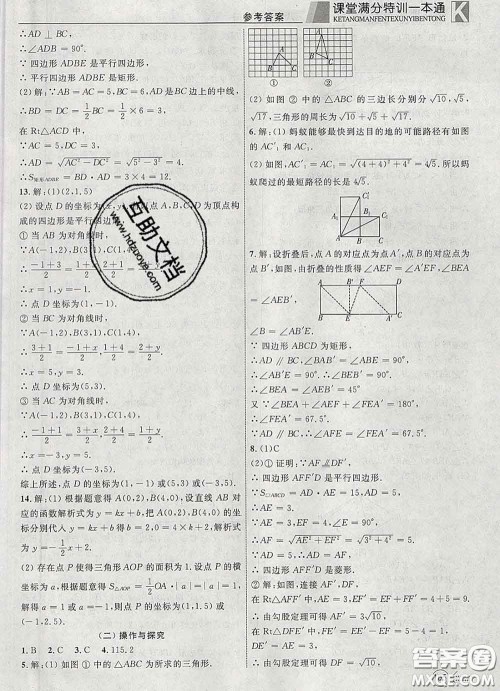 参考答案
课堂满分特训一本通
KETANGMANFENTEXUNYIBENTONG
K
∴AD⊥BC,
∴∠ADB=90°.
∵四边形 ADBE 是平行四边形,
∴平行四边形 ADBE 是矩形.
(2)解:∵AB=AC=5,BC=6,AD 是 BC 边上的中线,
∴BD=DC=6×1/2=3,
在 Rt△ACD 中,
AD=√(AC²-DC²)=√(5²-3²)=4.
∴S矩形ADBE=BD·AD=3×4=12.
13.解:(1)(2,1.5)
(2)设点 D 的坐标为
构成的四边形是平行四边
①当 AB 为对角线时,
∵A(-1,2),B(3,1),C(1,4),
∴x=1,y=-1.
∴点 D 坐标为(1,-1).
②当 BC 为对角线时,
∵A(-1,2),B(3,1),C(1,4),
∴(3+1)/2=(-1+x)/2,(1+4)/2=(2+y)/2.
∴x=5,y=3.
∴点 D 坐标为(5,3).
③当 AC 为对角线时,
∵A(-1,2),B(3,1),C(1,4),
∴(-1+1)/2=(3+x)/2,(2+4)/2=(1+y)/2.
∴x=-3,y=5.
∴点 D 坐标为(-3,5).
综上所述,点 D 坐标为(1,-1)或(5,3)或(-3,5).
14.解:(1)根据题意得 A(0,2),B(4,0),设线段 AB 对
应的函数解析式为 y=kx+b,把 A(0,2),B(4,0)的坐
标分别代入 y=kx+b 得 b=2,4k+b=0,解得,解析式
为 y=-1/2x+2.
(2)存在点 P 使得三角形 AOP 的面积为 1.设点 P 的横
坐标为 a,根据题意得 S△AOP=1/2OA·|a|=|a|=
1,∴a=±1,所以点 P 的坐标为(1,1.5)或
(-1,2.5).
(二)操作与探究
1.B 2.C 3.C 4.115.2
5.解:(1)如图①中的△ABC 为所求的三角形.
① ②
(2)如图②中的△ABC 的三边长分别为√10,√5,
√17,三角形的周长为√10+√5+√17.
6.解:(1)蚂蚁能够最快到达目的地的可能路径有如图
的 AC′₁ 和 AC₁.
(2)如图,AC′₁=√(4²+(4+4)²)=4√5.所以蚂
蚁爬过的最短路径的长是 4√5.
7.解:设折叠后,点 A 的对应点为点 A′,点 B 的对应点
为点 B′,如图,由折叠的性质得∠ABE=∠AB′E,
∠BAE=∠EAB′,
∵四边形 ABCD 为矩形,
∴AD∥BC,∠ABE=∠BAF=90°,
∴∠AB′E=90°,∠BEB′=90°.
∴∠BEA=∠AEB′=45°.
又∵∠AEF=∠FEA′,
∴∠AEB′+∠AEF+∠FEA′=180°.
∴∠AEF=∠FEA′=67.5°.
∵AD∥BC,∴∠AFE=∠FEA′=67.5°.
8.(1)C
(2)①证明:∵AF∥DF′,
∴四边形 AFF′D 是平行四边形.
∵S▱ABCD=AD·AE=15,AD=5,
∴AE=3.
∵AE=3,EF=4,∠E=90°,
∴AF=√(AE²+EF²)=√(3²+4²)=5.
∵AD=5,∴AD=AF.
∴四边形 AFF′D 是菱形.
②解:如图,连接 AF′,DF,
在 Rt△AEF′中,AE=3,EF′=EF+FF′=4+5=9.
∴由勾股定理可得 AF′=3√10.
在 Rt△DFE′中,FE′=E′E-EF=5-4=1,DE′=AE=3.
∴由勾股定理可得 DF=√10.
互助文档
www.hdzuoye.com
答案圈
MXQE.COM